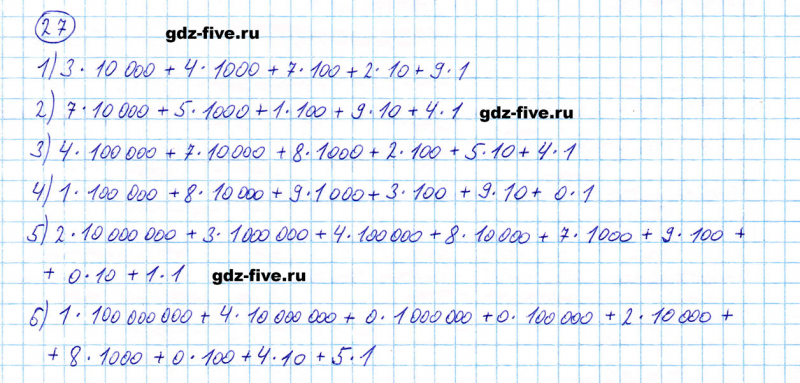 27 gdz-five.ru
1) 3 · 10 000 + 4 · 1000 + 7 · 100 + 2 · 10 + 9 · 1
2) 7 · 10 000 + 5 · 1000 + 1 · 100 + 9 · 10 + 4 · 1 gdz-five.ru
3) 4 · 100 000 + 7 · 10 000 + 8 · 1000 + 2 · 100 + 5 · 10 + 4 · 1
4) 1 · 100 000 + 8 · 10 000 + 9 · 1 000 + 3 · 100 + 9 · 10 + 0 · 1
5) 2 · 10 000 000 + 3 · 1000 000 + 4 · 100 000 + 8 · 10 000 + 7 · 1000 + 9 · 100 +
+ 0 · 10 + 1 · 1 gdz-five.ru
6) 1 · 100 000 000 + 4 · 10 000 000 + 0 · 1 000 000 + 0 · 100 000 + 2 · 10 000 +
+ 8 · 1000 + 0 · 100 + 4 · 10 + 5 · 1